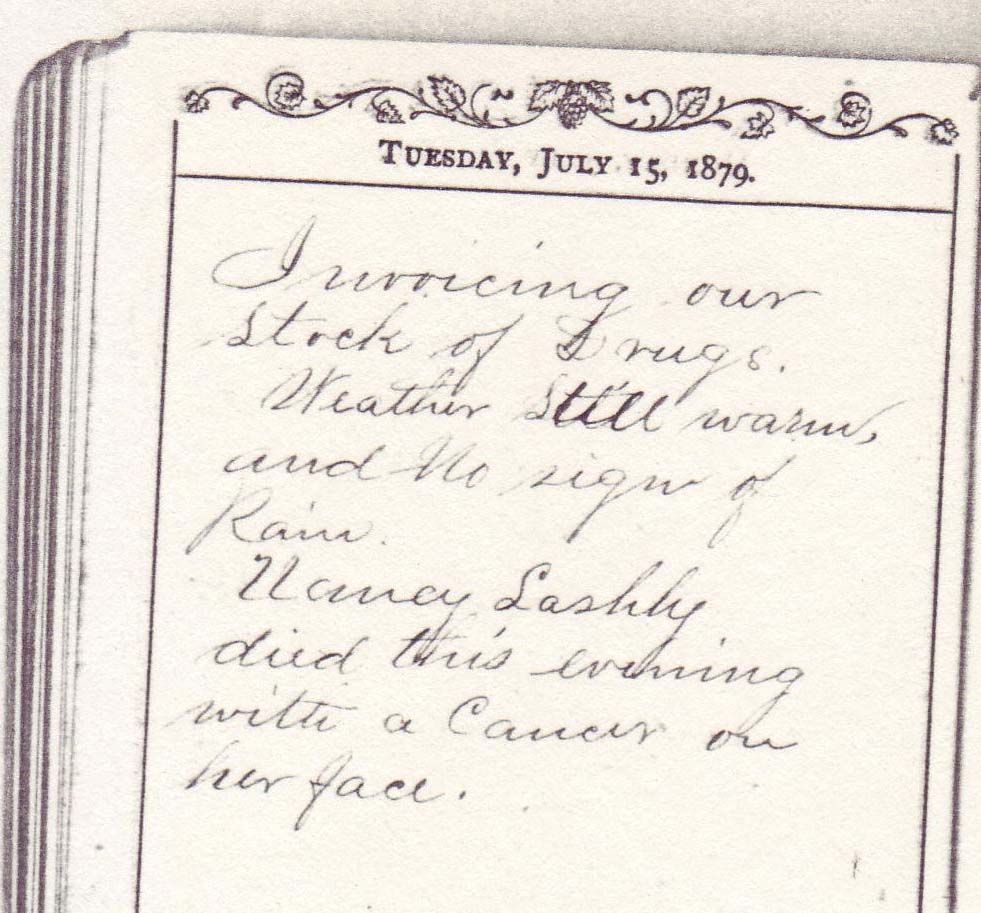 TUESDAY, JULY 15, 1879.
Invoicing our
Stock of Drugs.
Weather Still warm,
and No sign of
Rain.
Nancy Lashly
died this evening
with a Cancer on
her face.